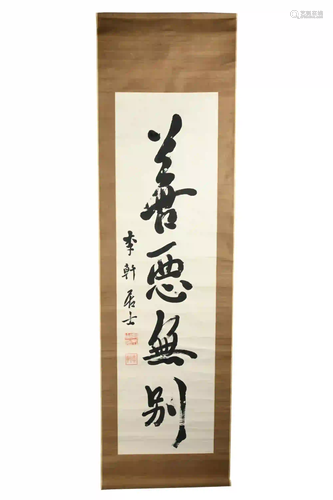 善悪無別
李軒居士